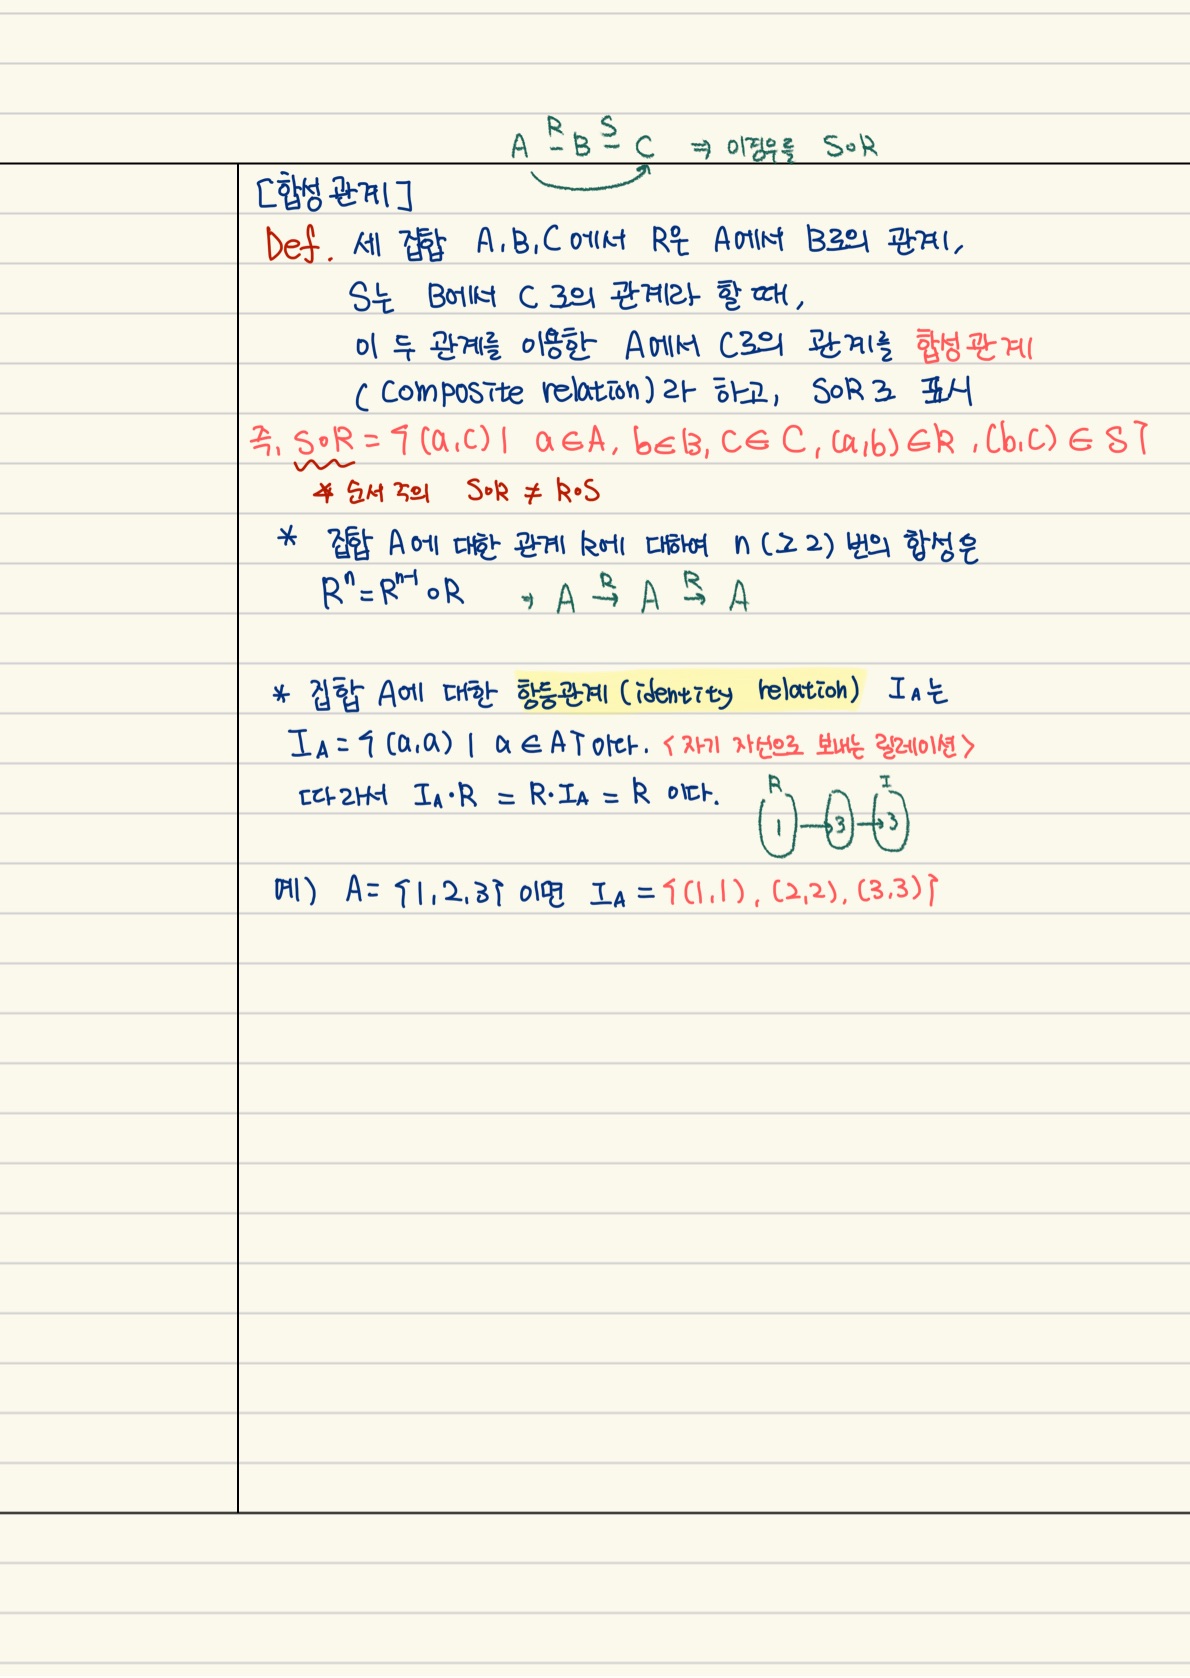 A R B S C ⇒ 이경우를 S∘R
[합성 관계]
Def. 세 집합 A, B, C 에서 R은 A에서 B로의 관계,
S는 B에서 C 로의 관계라 할 때,
이 두 관계를 이용한 A에서 C로의 관계를 합성관계
(composite relation)라 하고, S∘R로 표시
즉, S∘R = {(a,c) | a∈A, b∈B, c∈C, (a,b)∈R, (b,c)∈S}
* 순서 주의 S∘R ≠ R∘S
* 집합 A에 대한 관계 R에 대하여 n(≥2) 번의 합성은
Rⁿ = Rⁿ⁻¹∘R ⇒ A R→ A R→ A
* 집합 A에 대한 항등관계(identity relation) I_A는
I_A = {(a,a) | a∈A} 이다. <자기 자신으로 보내는 릴레이션>
따라서 I_A·R = R·I_A = R 이다.
R I
1 → 3 → 3
예) A = {1, 2, 3} 이면 I_A = {(1,1), (2,2), (3,3)}